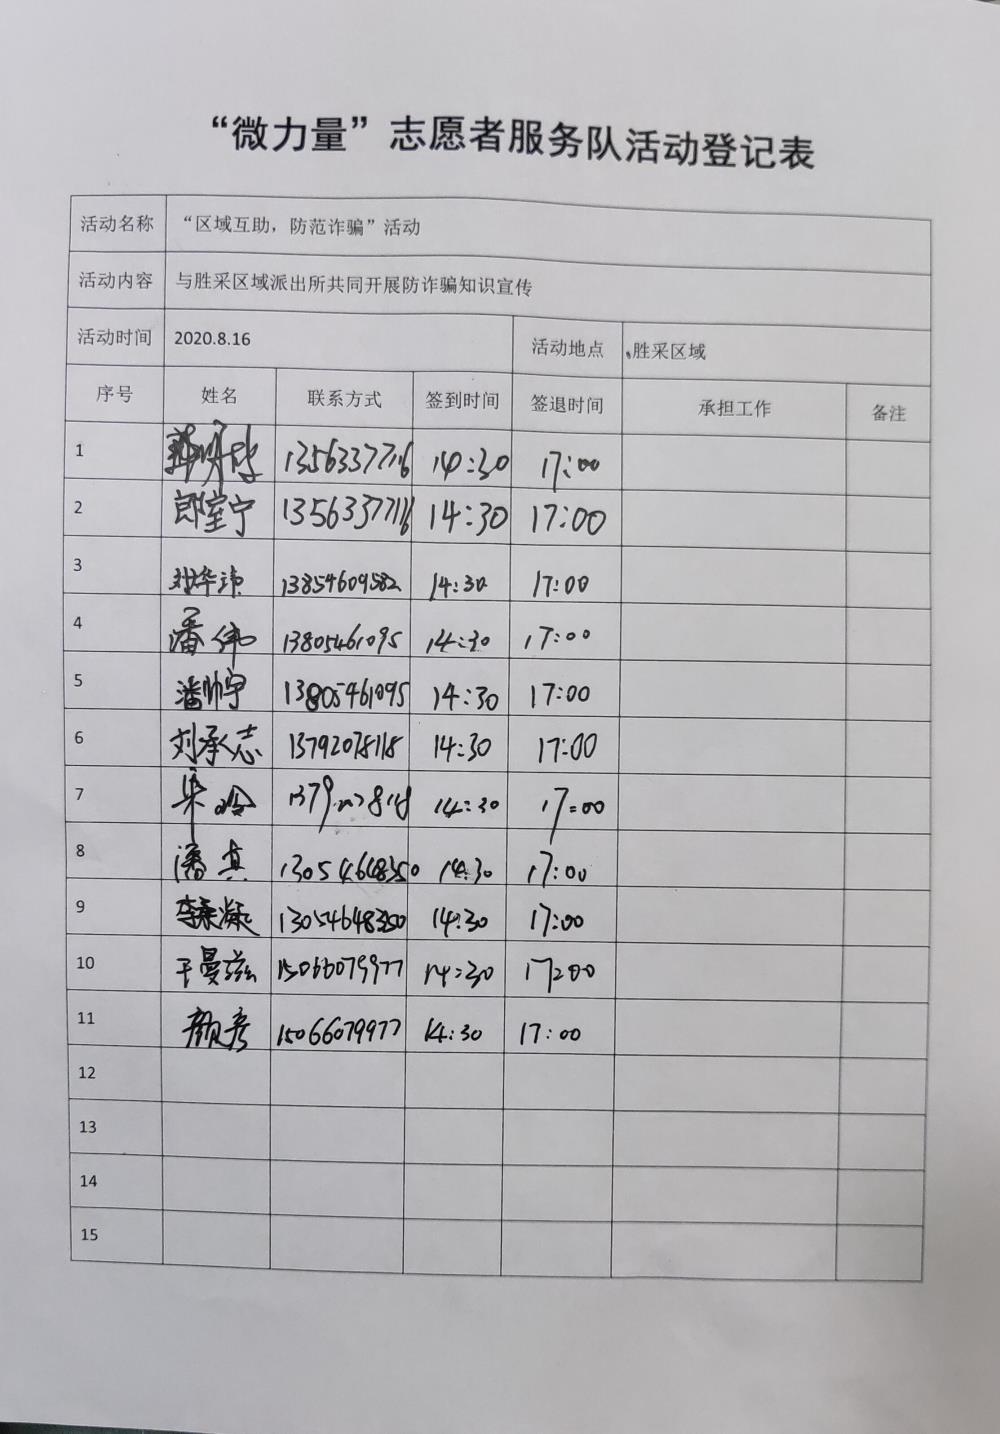 “微力量”志愿者服务队活动登记表
活动名称 “区域互助，防范诈骗”活动
活动内容 与胜采区域派出所共同开展防诈骗知识宣传
活动时间 2020.8.16 活动地点 胜采区域
序号 姓名 联系方式 签到时间 签退时间 承担工作 备注
1 13563377116 14:30 17:00
2 郎室宁 13563377116 14:30 17:00
3 13854609582 14:30 17:00
4 潘伟 13805461095 14:30 17:00
5 潘帅宇 13805461095 14:30 17:00
6 刘承志 13792078118 14:30 17:00
7 14:30 17:00
8 潘真 13054648350 14:30 17:00
9 13054648350 14:30 17:00
10 15066079977 14:30 17:00
11 颜彦 15066079977 14:30 17:00
12
13
14
15